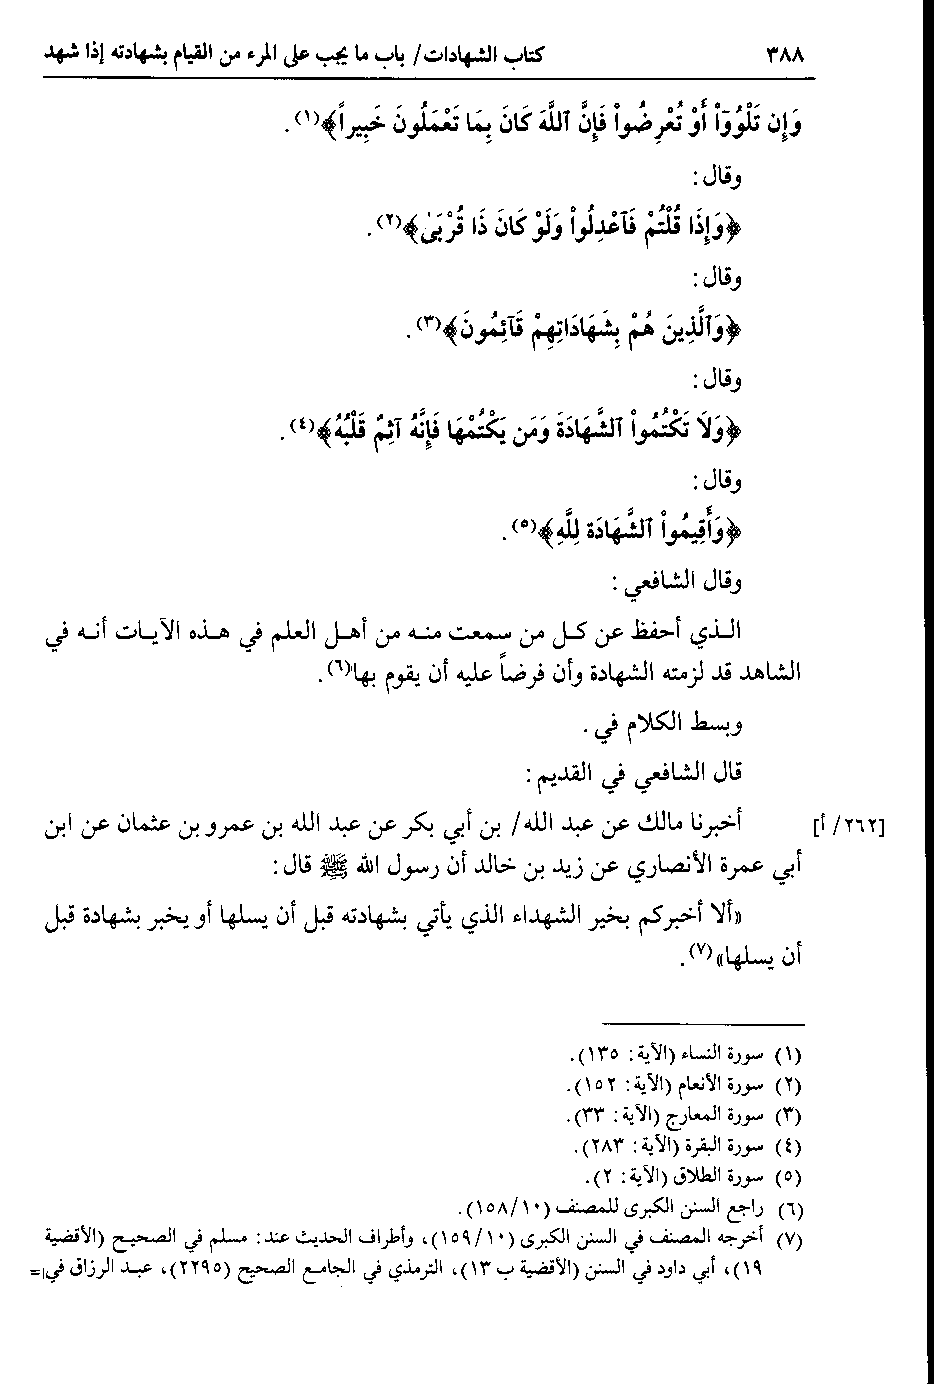 ٣٨٨ كتاب الشهادات/ باب ما يجب على المرء من القيام بشهادته إذا شهد
وَإِن تَلْوُوٓاْ أَوْ تُعْرِضُواْ فَإِنَّ ٱللَّهَ كَانَ بِمَا تَعْمَلُونَ خَبِيراً﴾(١).
وقال:
﴿وَإِذَا قُلْتُمْ فَٱعْدِلُواْ وَلَوْ كَانَ ذَا قُرْبَىٰ﴾(٢).
وقال:
﴿وَٱلَّذِينَ هُمْ بِشَهَادَاتِهِمْ قَآئِمُونَ﴾(٣).
وقال:
﴿وَلَا تَكْتُمُواْ ٱلشَّهَادَةَ وَمَن يَكْتُمْهَا فَإِنَّهُ آثِمٌ قَلْبُهُ﴾(٤).
وقال:
﴿وَأَقِيمُواْ ٱلشَّهَادَةَ لِلَّهِ﴾(٥).
وقال الشافعي:
الذي أحفظ عن كل من سمعت منه من أهل العلم في هذه الآيات أنه في
الشاهد قد لزمته الشهادة وأن فرضاً عليه أن يقوم بها(٦).
وبسط الكلام في.
قال الشافعي في القديم:
[٢٦٢/ أ] أخبرنا مالك عن عبد الله/ بن أبي بكر عن عبد الله بن عمرو بن عثمان عن ابن
أبي عمرة الأنصاري عن زيد بن خالد أن رسول الله ﷺ قال:
«ألا أخبركم بخير الشهداء الذي يأتي بشهادته قبل أن يسلها أو يخبر بشهادة قبل
أن يسلها»(٧).
(١) سورة النساء (الآية: ١٣٥).
(٢) سورة الأنعام (الآية: ١٥٢).
(٣) سورة المعارج (الآية: ٣٣).
(٤) سورة البقرة (الآية: ٢٨٣).
(٥) سورة الطلاق (الآية: ٢).
(٦) راجع السنن الكبرى للمصنف (١٥٨/١٠).
(٧) أخرجه المصنف في السنن الكبرى (١٥٩/١٠)، وأطراف الحديث عند: مسلم في الصحيح (الأقضية
١٩)، أبي داود في السنن (الأقضية ب ١٣)، الترمذي في الجامع الصحيح (٢٢٩٥)، عبد الرزاق في=